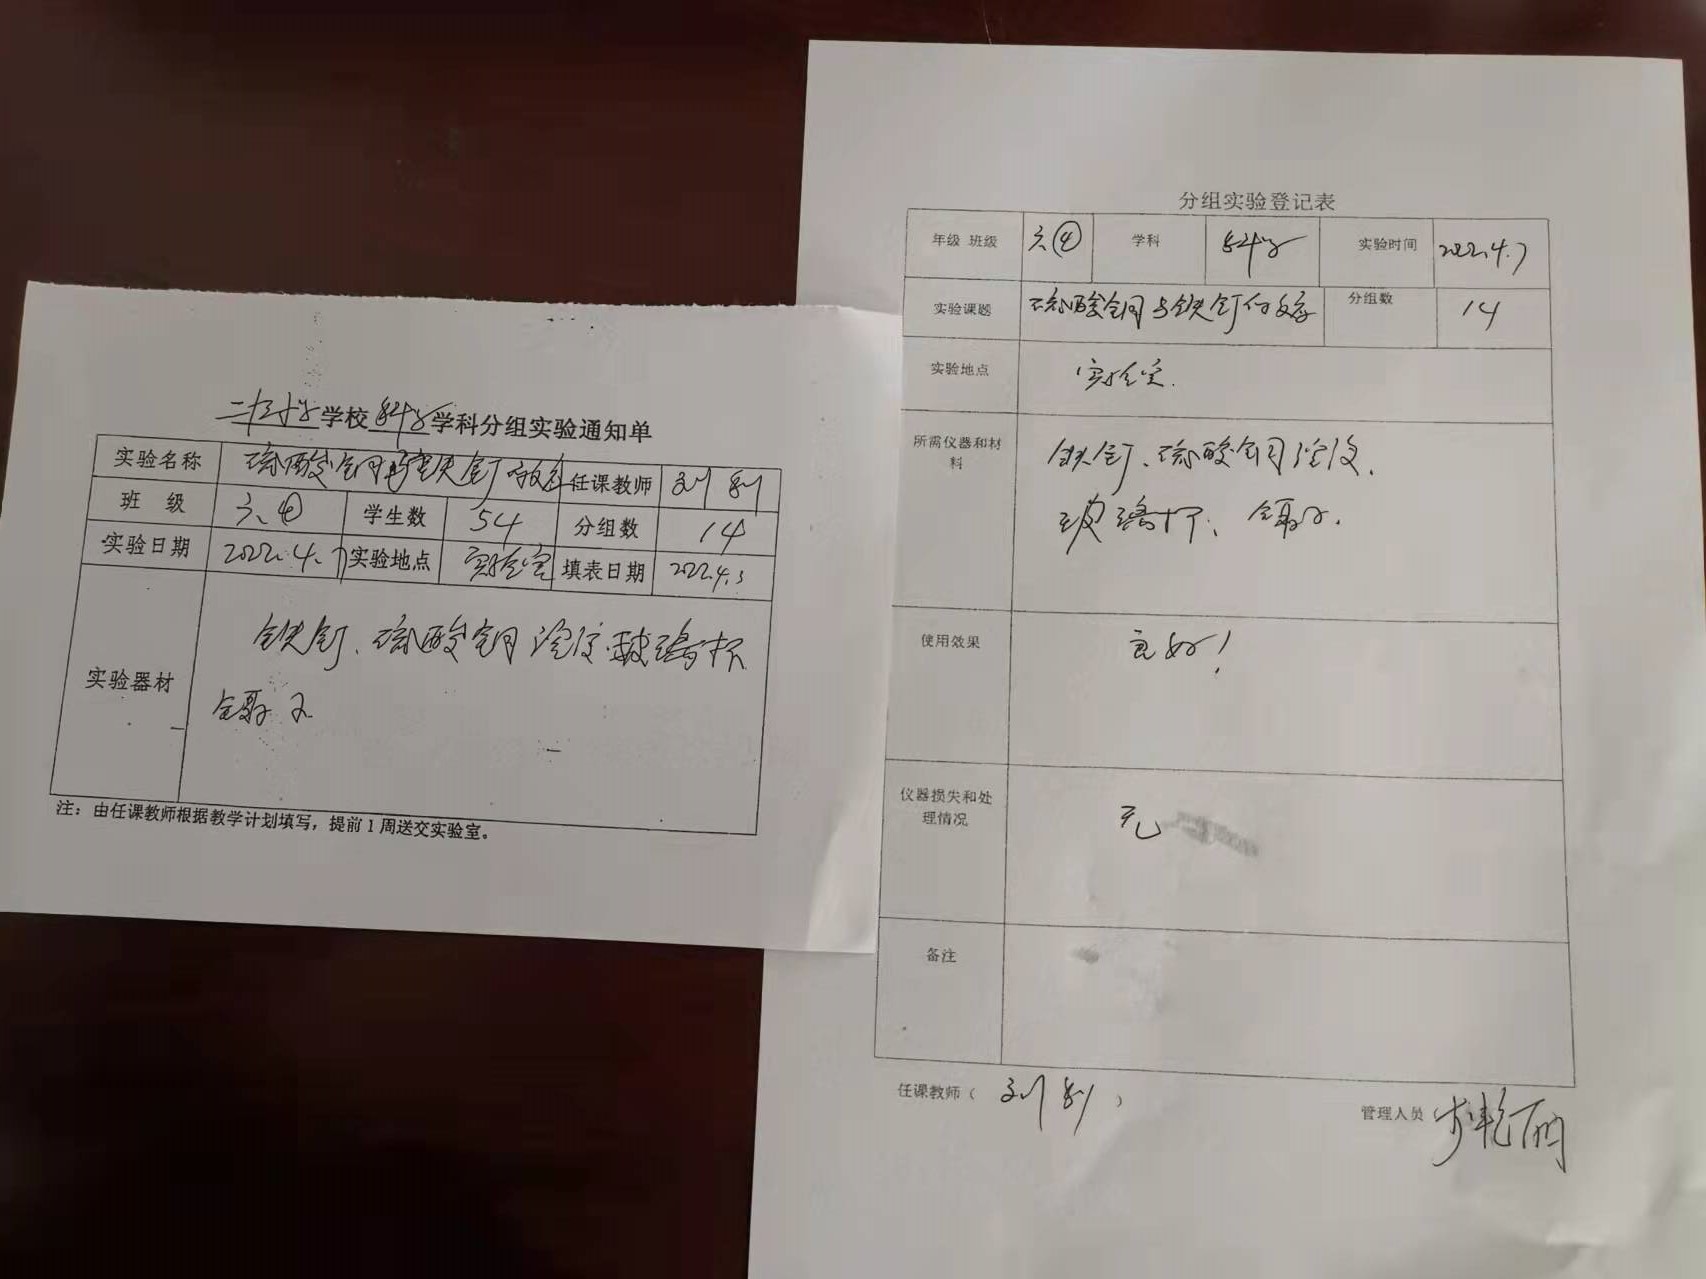 学校科学学科分组实验通知单
实验名称 硫酸铜与铁钉 任课教师 刘
班 级 六、④ 学生数 54 分组数 14
实验日期 2022.4.7 实验地点 实验室 填表日期 2022.4.3
实验器材 铁钉、硫酸铜溶液、玻璃杯
镊子
注：由任课教师根据教学计划填写，提前1周送交实验室。
分组实验登记表
年级 班级 六④ 学科 科学 实验时间 2022.4.7
实验课题 硫酸铜与铁钉的反应 分组数 14
实验地点 实验室.
所需仪器和材料 铁钉、硫酸铜溶液、
玻璃杯、镊子.
使用效果 良好！
仪器损失和处理情况 无
备注
任课教师（ 刘 ）
管理人员 艳丽